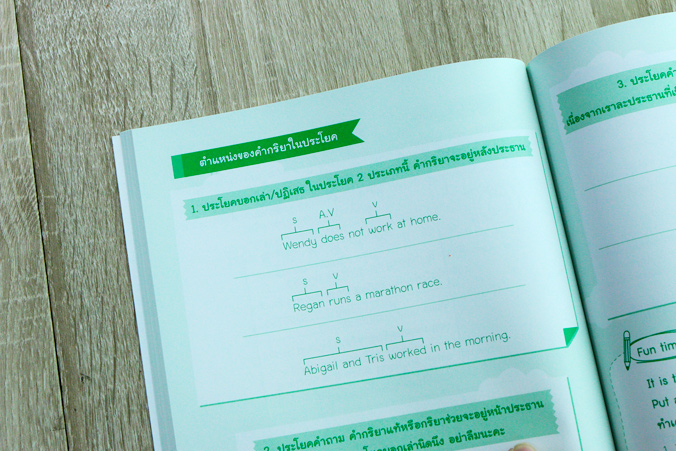 ตำแหน่งของคำกริยาในประโยค
1. ประโยคบอกเล่า/ปฏิเสธ ในประโยค 2 ประเภทนี้ คำกริยาจะอยู่หลังประธาน
S A.V V
Wendy does not work at home.
S V
Regan runs a marathon race.
S V
Abigail and Tris worked in the morning.
2. ประโยคคำถาม คำกริยาแท้หรือกริยาช่วยจะอยู่หน้าประธาน
บอกเล่านิดนึง อย่าลืมนะคะ
3. ประโยคคำ
เนื่องจากเราละประธานที่
Fun tim
It is t
Put a